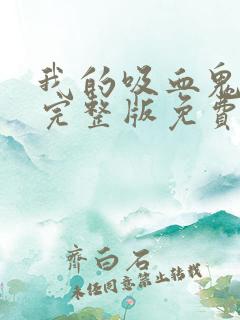 我的吸血鬼
完整版免费
齐白石
未经同意禁止转载